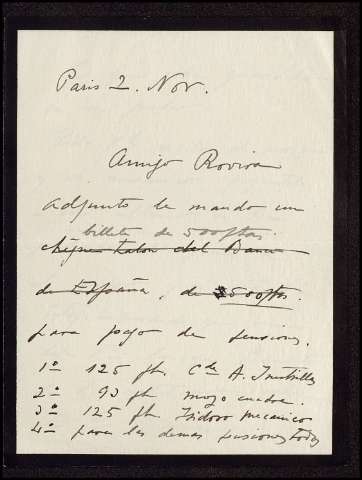 Paris 2. Nov.
Amigo Rovira
adjunto le mando un
billete de 500 ptas.
chèque talon del Banco
de España, de 500 ptas.
para pago de pensiones.
1º 125 pts. Cde A. Inestrillas
2º 93 pts. mozo cuadra.
3º 125 pts. Isidoro mecanico
4º para las demas pensiones todas